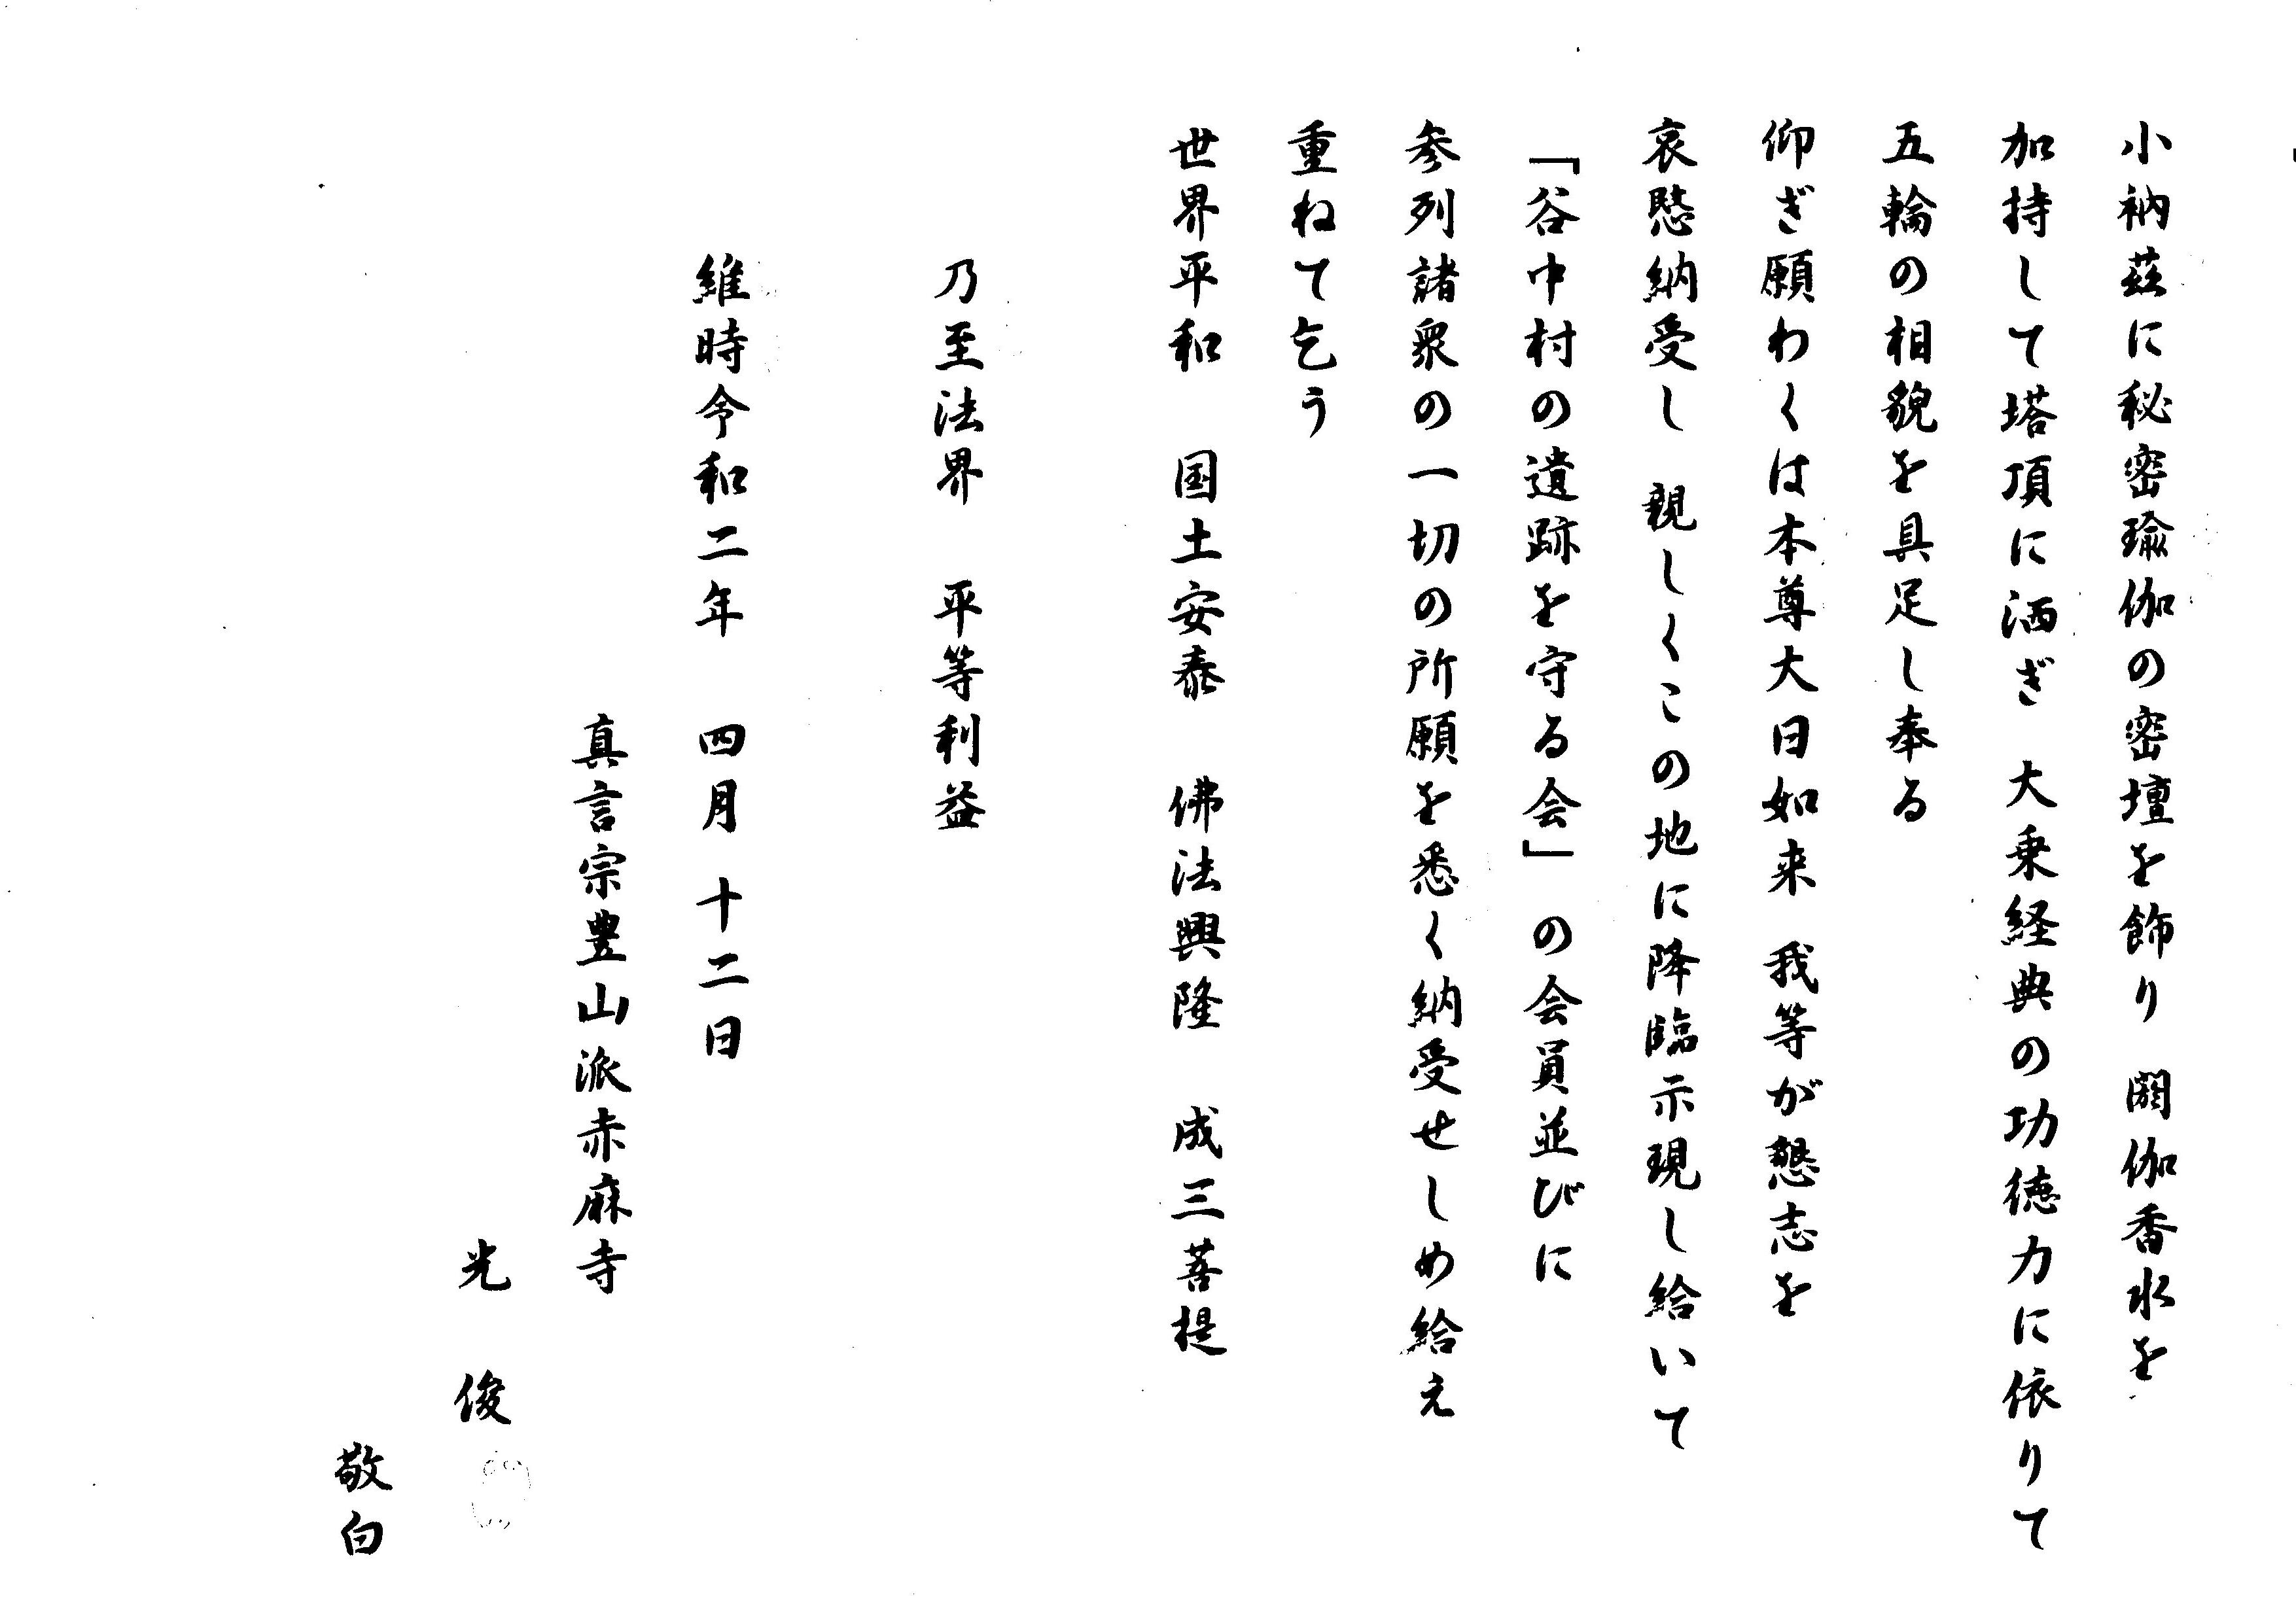 小衲茲に秘密瑜伽の密壇を飾り　閼伽香水を
加持して塔頂に洒ぎ　大乗経典の功徳力に依りて
五輪の相貌を具足し奉る
仰ぎ願わくは本尊大日如来　我等が懇志を
哀愍納受し　親しくこの地に降臨示現し給いて
「谷中村の遺跡を守る会」の会員並びに
参列諸衆の一切の所願を悉く納受せしめ給え
重ねて乞う
世界平和　国土安泰　佛法興隆　成三菩提
乃至法界　平等利益
維時令和二年　四月　十二日
真言宗豊山派赤麻寺
光　俊
敬白